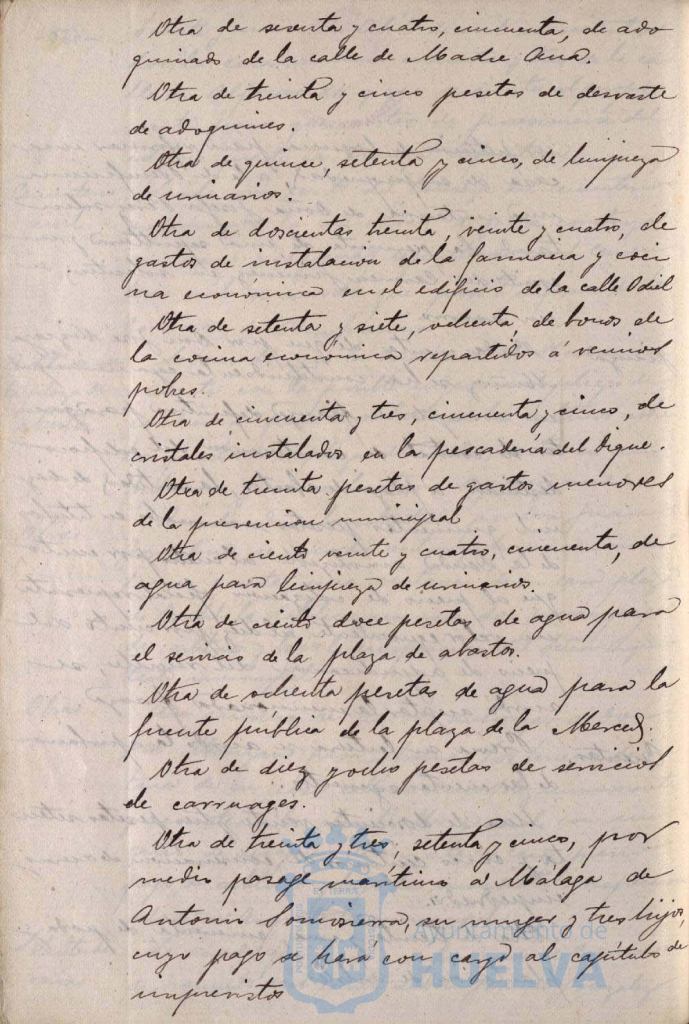 Otra de sesenta y cuatro, cincuenta, de ado
quinado de la calle de Madre Ana.
Otra de treinta y cinco pesetas de desvaste
de adoquines.
Otra de quince, setenta y cinco, de limpieza
de urinarios.
Otra de doscientas treinta, veinte y cuatro, de
gastos de instalacion de la farmacia y coci
na económica en el edificio de la calle Odiel
Otra de setenta y siete, ochenta, de bonos de
la cocina economica repartidos á vecinos
pobres.
Otra de cincuenta y tres, cincuenta y cinco, de
cristales instalados en la pescadería del Dique.
Otra de treinta pesetas de gastos menores
de la prevencion municipal
Otra de ciento veinte y cuatro, cincuenta, de
agua para limpieza de urinarios.
Otra de ciento doce pesetas de agua para
el servicio de la plaza de abastos.
Otra de ochenta pesetas de agua para la
fuente pública de la plaza de la Merced.
Otra de diez y ocho pesetas de servicios
de carruages.
Otra de treinta y tres, setenta y cinco, por
medio pasage marítimo a Málaga de
Antonio Somosierra, su muger y tres hijos,
cuyo pago se hará con cargo al capítulo de
imprevistos
Ayuntamiento de
HUELVA